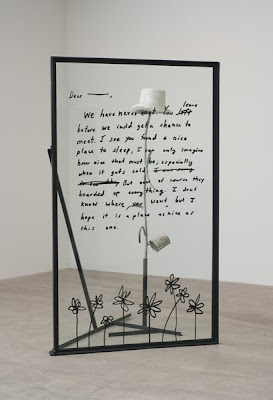 Dear ——,
leave
We have never met. You left
before we could get a chance to
meet. I see you found a nice
place to sleep, I can only imagine
how nice that must be; especially
when it gets cold.
But now of course they
boarded up everything. I dont
know where you went but I
hope it is a place as nice as
this one.